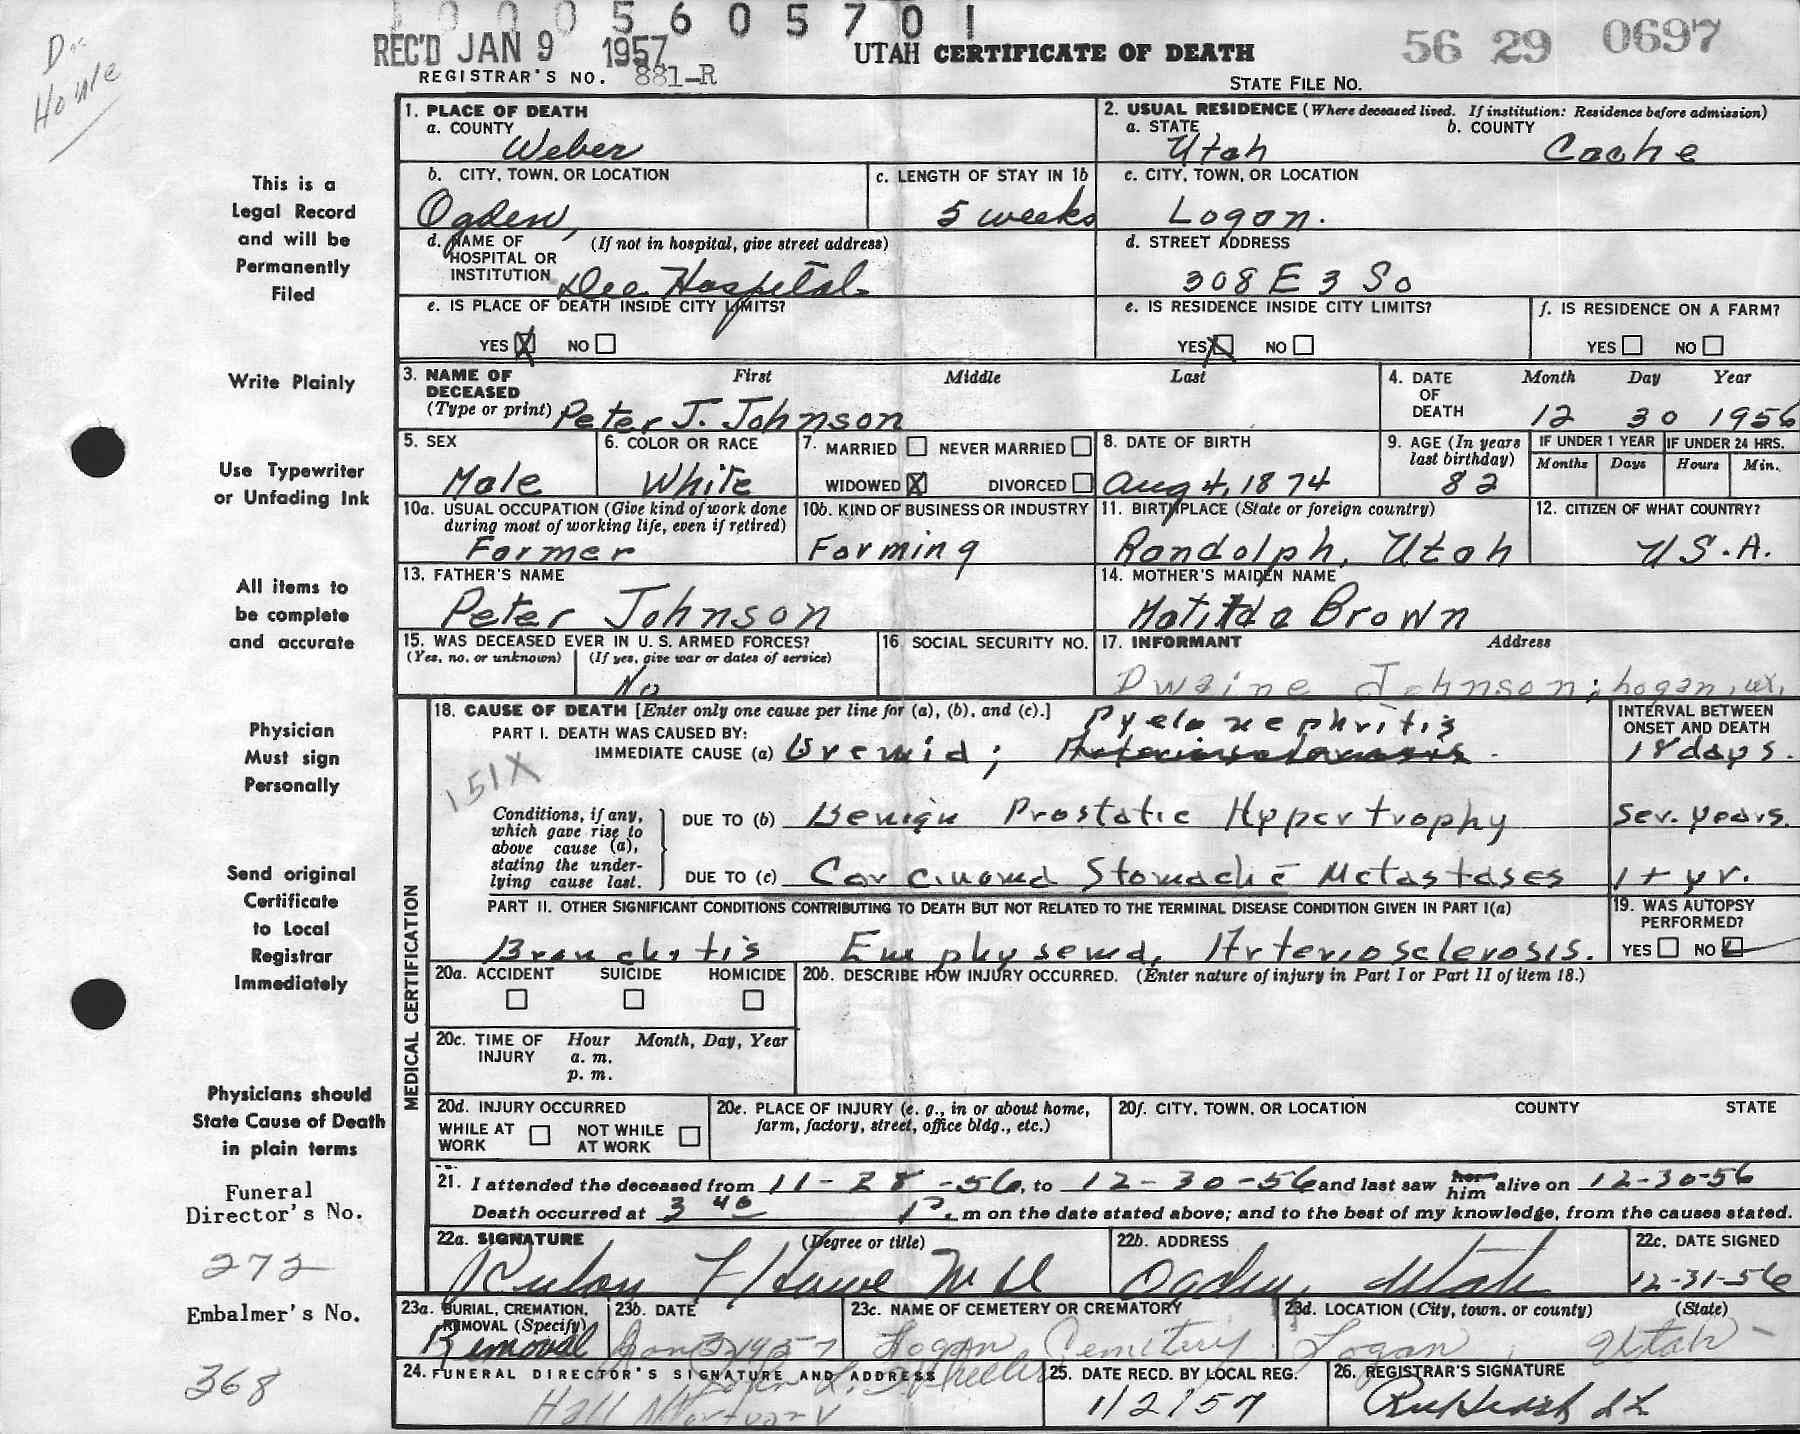 1 0 0 0 5 6 0 5 7 0 1
Doc Howe
REC'D JAN 9 1957
UTAH CERTIFICATE OF DEATH
56 29 0697
REGISTRAR'S NO. 881-R
STATE FILE NO.
This is a
Legal Record
and will be
Permanently
Filed
Write Plainly
Use Typewriter
or Unfading Ink
All items to
be complete
and accurate
Physician
Must sign
Personally
Send original
Certificate
to Local
Registrar
Immediately
Physicians should
State Cause of Death
in plain terms
Funeral
Director's No.
272
Embalmer's No.
368
1. PLACE OF DEATH
a. COUNTY
Weber
2. USUAL RESIDENCE (Where deceased lived. If institution: Residence before admission)
a. STATE Utah
b. COUNTY Cache
b. CITY, TOWN, OR LOCATION
Ogden,
c. LENGTH OF STAY IN 1b
5 weeks
c. CITY, TOWN, OR LOCATION
Logan.
d. NAME OF (If not in hospital, give street address)
HOSPITAL OR
INSTITUTION Dee Hospital
d. STREET ADDRESS
308 E 3 So
e. IS PLACE OF DEATH INSIDE CITY LIMITS?
YES X NO
e. IS RESIDENCE INSIDE CITY LIMITS?
YES X NO
f. IS RESIDENCE ON A FARM?
YES NO
3. NAME OF DECEASED (Type or print)
First Middle Last
Peter J. Johnson
4. DATE OF DEATH
Month Day Year
12 30 1956
5. SEX
Male
6. COLOR OR RACE
White
7. MARRIED NEVER MARRIED
WIDOWED X DIVORCED
8. DATE OF BIRTH
Aug 4, 1874
9. AGE (In years last birthday)
82
IF UNDER 1 YEAR
Months Days
IF UNDER 24 HRS.
Hours Min.
10a. USUAL OCCUPATION (Give kind of work done
during most of working life, even if retired)
Farmer
10b. KIND OF BUSINESS OR INDUSTRY
Farming
11. BIRTHPLACE (State or foreign country)
Randolph, Utah
12. CITIZEN OF WHAT COUNTRY?
U.S.A.
13. FATHER'S NAME
Peter Johnson
14. MOTHER'S MAIDEN NAME
Matilda Brown
15. WAS DECEASED EVER IN U. S. ARMED FORCES?
(Yes, no, or unknown) (If yes, give war or dates of service)
No
16 SOCIAL SECURITY NO.
17. INFORMANT Address
Dwaine Johnson; Logan, ut,
MEDICAL CERTIFICATION
18. CAUSE OF DEATH [Enter only one cause per line for (a), (b), and (c).]
INTERVAL BETWEEN
ONSET AND DEATH
PART I. DEATH WAS CAUSED BY:
IMMEDIATE CAUSE (a) Uremia; Pyelonephritis
18 days.
151X
Conditions, if any,
which gave rise to
above cause (a),
stating the under-
lying cause last.
DUE TO (b) Benign Prostatic Hypertrophy
Sev. years.
DUE TO (c) Carcinoma Stomach c̄ Metastases
1+ yr.
PART II. OTHER SIGNIFICANT CONDITIONS CONTRIBUTING TO DEATH BUT NOT RELATED TO THE TERMINAL DISEASE CONDITION GIVEN IN PART I(a)
Bronchitis Emphysema, Arteriosclerosis.
19. WAS AUTOPSY
PERFORMED?
YES NO
20a. ACCIDENT SUICIDE HOMICIDE
20b. DESCRIBE HOW INJURY OCCURRED. (Enter nature of injury in Part I or Part II of item 18.)
20c. TIME OF INJURY
Hour Month, Day, Year
a. m.
p. m.
20d. INJURY OCCURRED
WHILE AT WORK NOT WHILE AT WORK
20e. PLACE OF INJURY (e. g., in or about home,
farm, factory, street, office bldg., etc.)
20f. CITY, TOWN, OR LOCATION COUNTY STATE
21. I attended the deceased from 11-28-56, to 12-30-56 and last saw her him alive on 12-30-56
Death occurred at 3 40 P. m on the date stated above; and to the best of my knowledge, from the causes stated.
22a. SIGNATURE (Degree or title)
Rulon F Howe M D
22b. ADDRESS
Ogden Utah
22c. DATE SIGNED
12-31-56
23a. BURIAL, CREMATION,
REMOVAL (Specify)
Removal
23b. DATE
Jan 2 1957
23c. NAME OF CEMETERY OR CREMATORY
Logan Cemetery
23d. LOCATION (City, town, or county) (State)
Logan, Utah
24. FUNERAL DIRECTOR'S SIGNATURE AND ADDRESS
Hall Mortuary
25. DATE RECD. BY LOCAL REG.
1/2/57
26. REGISTRAR'S SIGNATURE